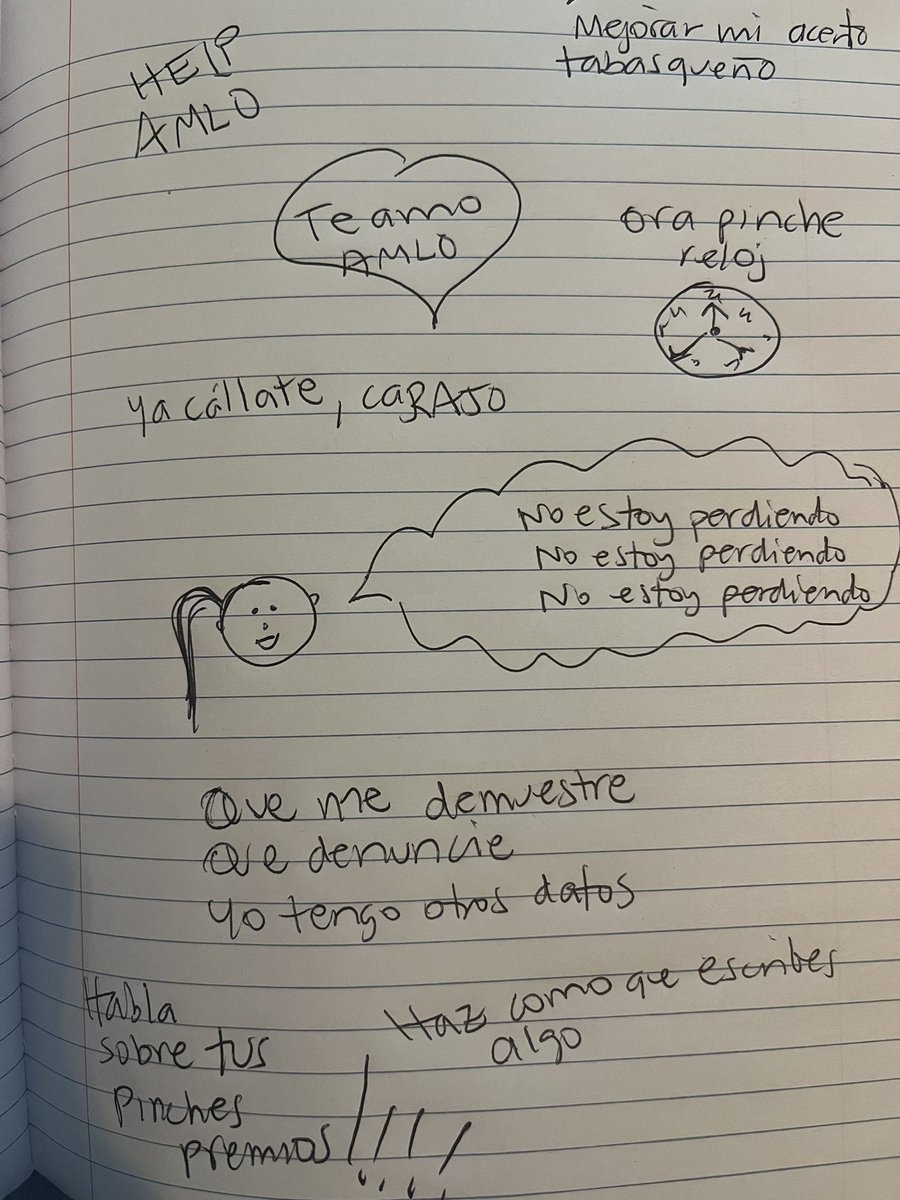 Mejorar mi acento
tabasqueño
HELP
AMLO
Te amo
AMLO
Ora pinche
reloj
Ya cállate, CARAJO
No estoy perdiendo
No estoy perdiendo
No estoy perdiendo
Que me demuestre
Que denuncie
Yo tengo otros datos
Haz como que escribes
algo
Habla
sobre tus
Pinches
premios !!!!